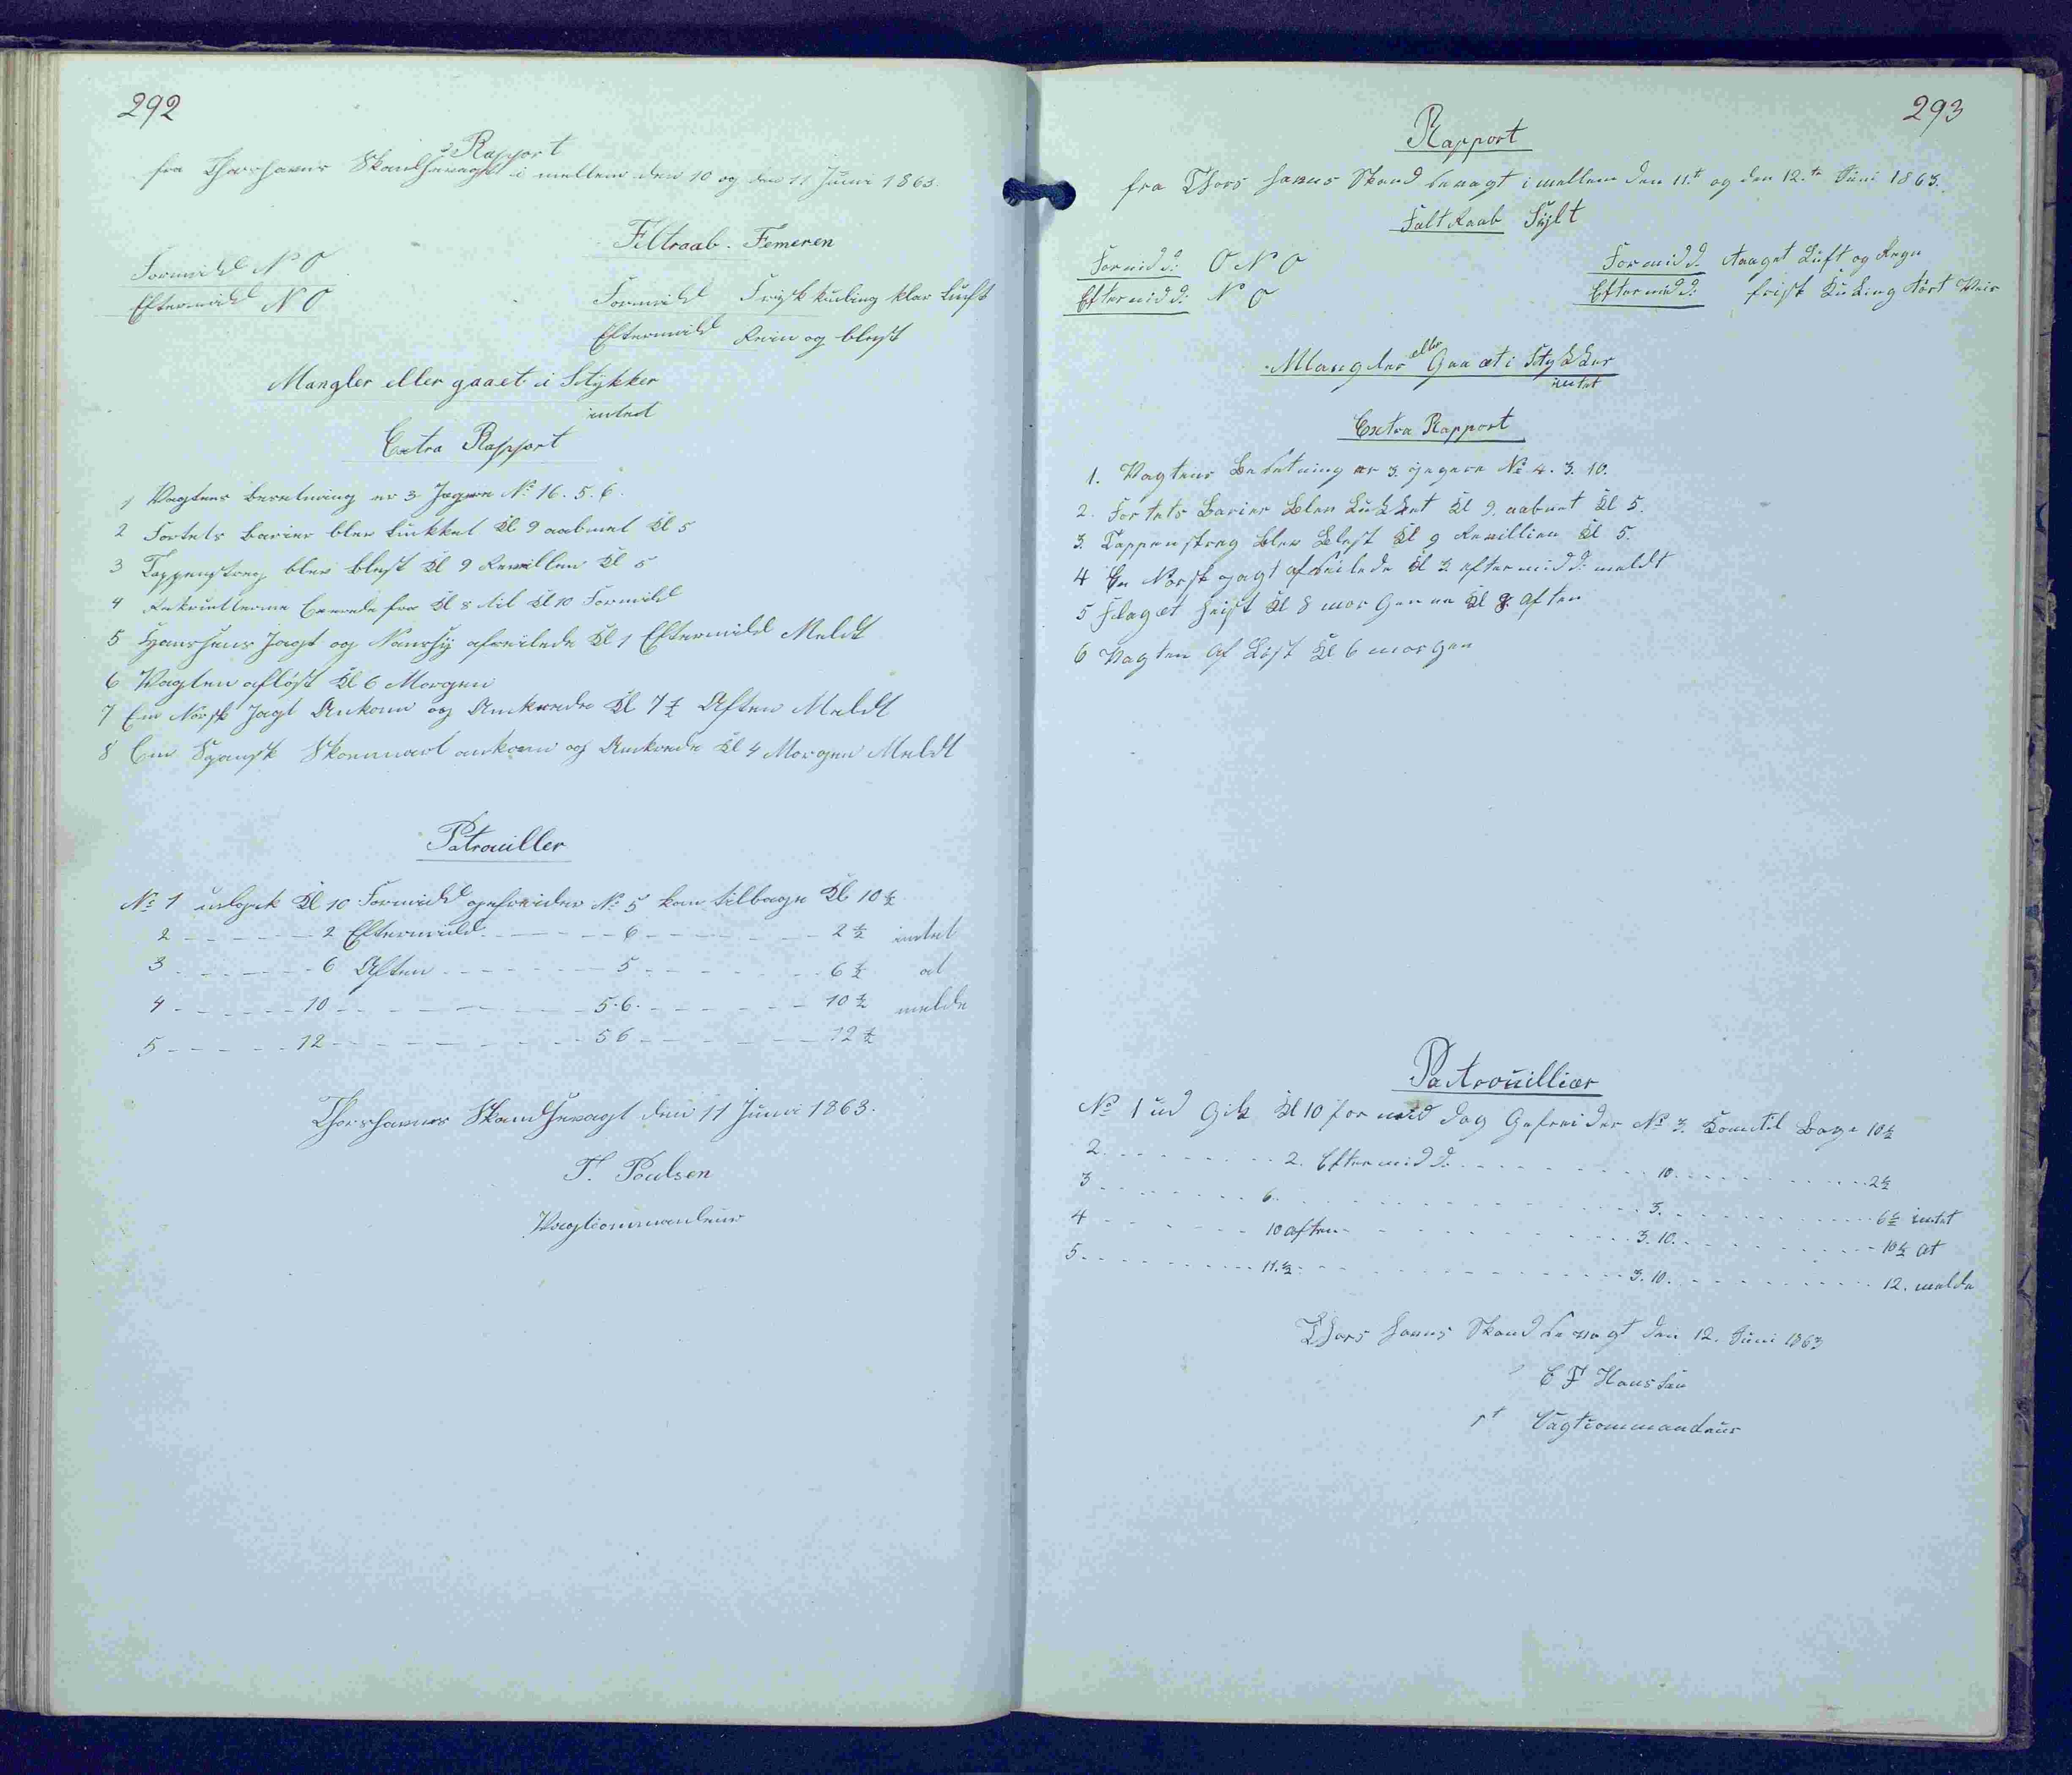 292
Rapport
fra Thorshavns Skandsevagt i mellem den 10 og den 11 Juni 1863.
Feltraab. Femeren
Formidd N O
Eftermidd N O
Formidd Frisk kuling klar Luft
Eftermidd Rein og blest
Mangler eller gaaet i Stykker
intet
Extra Rapport
1 Vagtens Besetning er 3 Jagere No 16. 5. 6.
2 Fortets Barier blev Lukket Kl 9 aabnet Kl 5
3 Tappenstreg blev blest Kl 9 Revellien Kl 5
4 Rekrutterne Exerede fra Kl 8 til Kl 10 Formidd
5 Jagt og afseilede Kl 1 Eftermidd Meldt
6 Vagten afløst Kl 6 Morgen
7 En Norsk Jagt Ankom og Ankrede Kl 7½ Aften Meldt
8 En Spansk Skonnart ankom og Ankrede Kl 4 Morgen Meldt
Patrouiller
No 1 udgik Kl 10 Formidd gefreider No 5 kom tilbage Kl 10½
2 - - - - - 2 Eftermidd. - - - - 6 - - - - - - 2½ intet
3 - - - - - 6 Aften - - - - - 5 - - - - - - 6½ at
4 - - - - - 10 - - - - - - - 5.6. - - - - - 10½ melde
5 - - - - - 12 - - - - - - - 5 6 - - - - - 12½
Thorshavns Skandsevagt den 11 Juni 1863.
T. Poulsen
Vagtcommandeur
293
Rapport
fra Thors havns Skand sevagt i mellem den 11.te og den 12.te Juni 1863.
Falt Raab Sylt
Formidd: O N O
Eftermidd: N O
Formidd. Taaget Luft og Regn
Eftermidd: frisk Kuling tört Veir
Mangler eller Gaa et i Stykker
intet
Extra Rapport
1. Vagtens Besetning er 3. jegere No 4. 3. 10.
2. Fortets Barier blev Lukket Kl 9. aabnet Kl 5.
3. Tappenstreg blev Blest Kl 9 Revillien Kl 5.
4 En Norsk jagt afseilede Kl 3 eftermidd: meldt
5 Flaget heist Kl 8 morgen ne Kl 8. Aften
6 Vagten Af Löst Kl 6 morgen
Patrouillier
No 1 ud Gik Kl 10 for mid dag Gefreider No 3. Kom til Bage 10½
2. - - - - - 2. Eftermidd: - - - - - 10. - - - - - 2½
3 - - - - - 6. - - - - - 3. - - - - - 6½ intet
4 - - - - - 10 aften - - - - - 3. 10. - - - - - 10½ at
5 - - - - - 11.½ - - - - - 3. 10. - - - - - 12. melde
Thors havns Skand sevagt den 12. Juni 1863
E F Hans sen
Vagtcommandeur